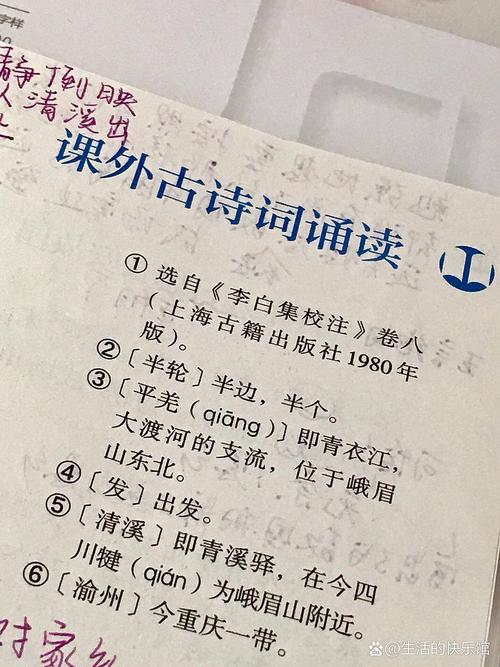 字样
静倒映
人清溪出
上
课外古诗词诵读
① 选自《李白集校注》卷八
（上海古籍出版社1980年
版）。
②〔半轮〕半边，半个。
③〔平羌（qiāng）〕即青衣江，
大渡河的支流，位于峨眉
山东北。
④〔发〕出发。
⑤〔清溪〕即青溪驿，在今四
川犍（qián）为峨眉山附近。
⑥〔渝州〕今重庆一带。
对家乡
百家号/生活的快乐馆